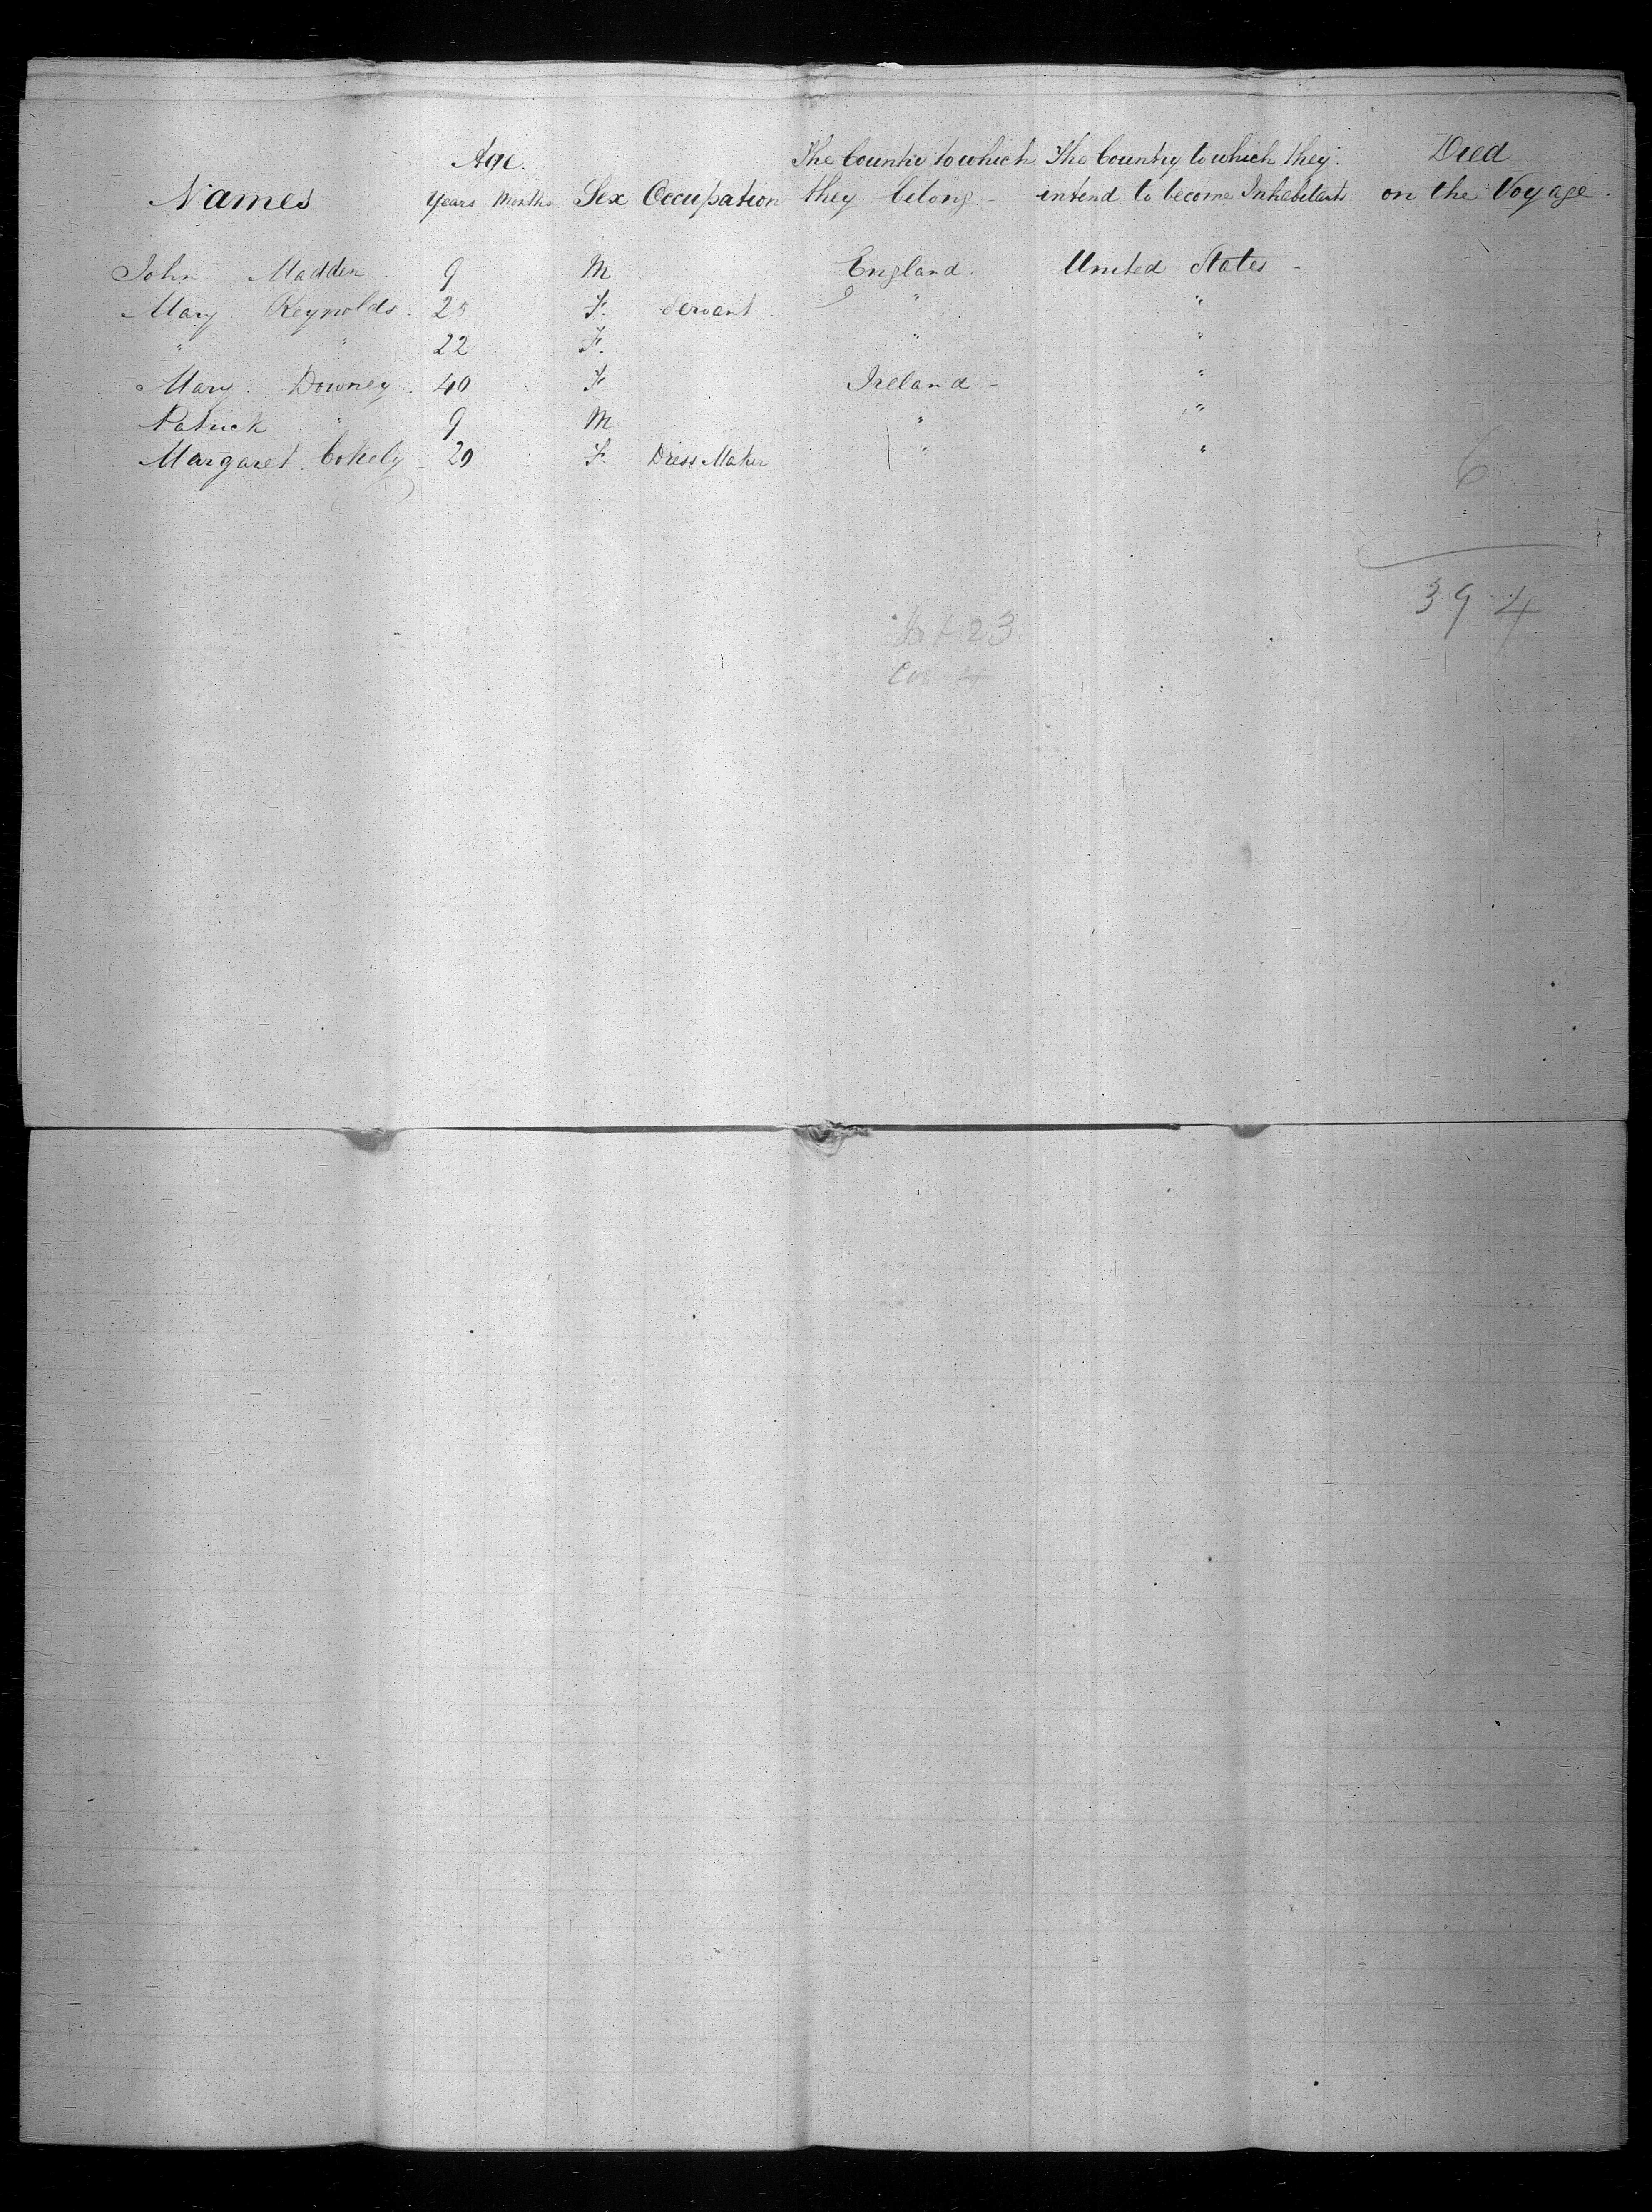 Age. The Country to which The Country to which they Died
Names Years Months Sex Occupation they belong - intend to become Inhabitants on the Voyage.
John Madden 9 M England. United States -
Mary Reynolds. 25 F. Servant. " "
" " 22 F. " "
Mary. Downey. 40 F Ireland - "
Patrick " 9 M " "
Margaret. Cokely - 20 F. Dress Maker " "
6
394
23